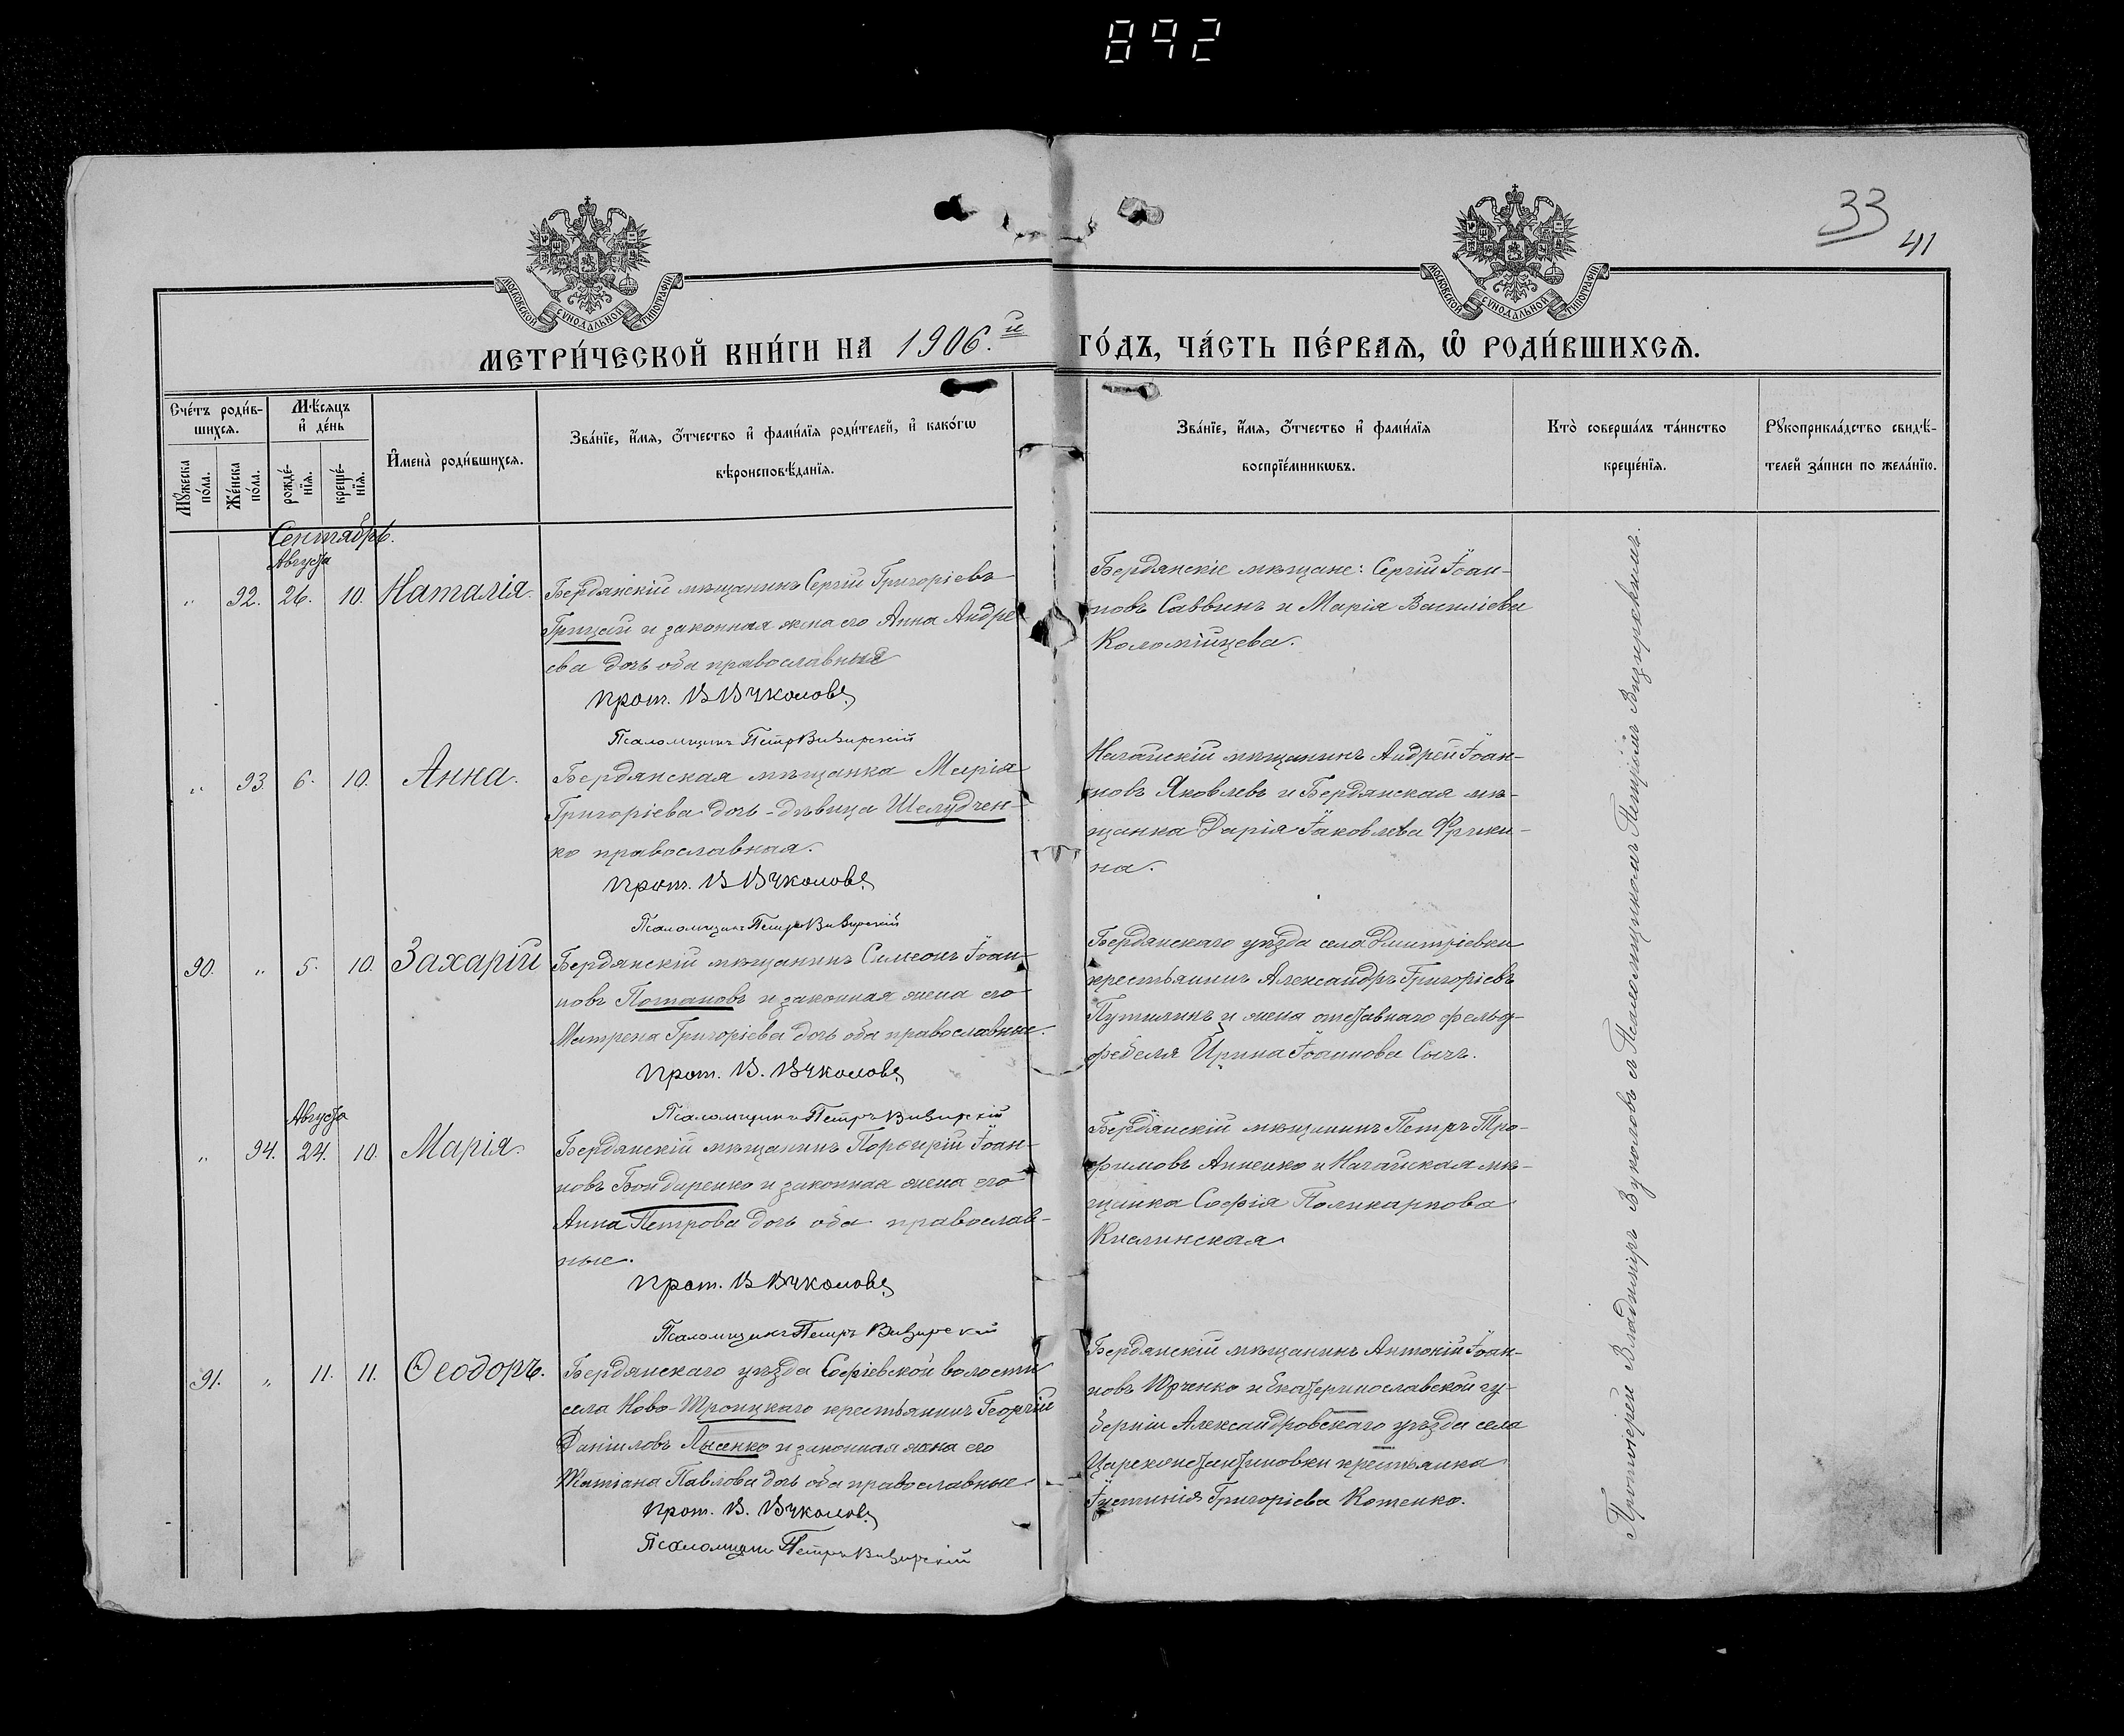 892
33
41
МОСКОВСКОЙ СУНОДАЛЬНОЙ ТИПОГРАФІИ
МОСКОВСКОЙ СУНОДАЛЬНОЙ ТИПОГРАФІИ
МЕТРИ́ЧЕСКОЙ КНИ́ГИ НА 1906.й ГО́ДЪ, ЧА́СТЬ ПЕ́РВАѦ, Ѡ҆ РОДИ́ВШИХСѦ.
Сче́тъ роди́в-
шихсѧ.
Мꙋ́жеска по́ла.
Же́нска по́ла.
Мѣ́сѧцъ
и҆ де́нь
рожде́-
нїѧ.
креще́-
нїѧ.
И҆мена̀ роди́вшихсѧ.
Зва́нїе, и҆́мѧ, ѻ҆́тчество и҆ фами́лїѧ роди́телей, и҆ како́гѡ
вѣроисповѣ́данїѧ.
Зва́нїе, и҆́мѧ, ѻ҆́тчество и҆ фами́лїѧ
воспрїе́мникѡвъ.
Кто̀ соверша́лъ та́инство
креще́нїѧ.
Рꙋкоприкла́дство свидѣ́-
телей за́писи по жела́нїю.
Сентябрь.
Августа
„ 92. 26. 10. Наталія.
Бердянскій мѣщанинъ Сергій Григоріевъ
Грицай и законная жена его Анна Андре
ева дочь оба православные
Прот. В Вуколовъ
Псаломщикъ Петръ Визирскій
Бердянскіе мѣщане: Сергій Іоан-
новъ Саввинъ и Марія Василіева
Коломійцева.
„ 93. 6. 10. Анна.
Бердянская мѣщанка Марія
Григоріева дочь-дѣвица Шелудчен-
ко православная.
Прот. В Вуколовъ
Псаломщикъ Петръ Визирскій
Ногайскій мѣщанинъ Андрей Іоан-
новъ Яковлевъ и Бердянская мѣ-
щанка Дарія Іаковлева
на.
90. „ 5. 10. Захарій
Бердянскій мѣщанинъ Симеонъ Іоан-
новъ Потаповъ и законная жена его
Матрена Григоріева дочь оба православные.
Прот. В. Вуколовъ
Псаломщикъ Петръ Визирскій
Бердянскаго уѣзда села Дмитріевки
крестьянинъ Александръ Григоріевъ
Путилинъ и жена отставнаго фельд-
фебеля Ирина Іоаннова Сычъ.
Августа
„ 94. 24. 10. Марія.
Бердянскій мѣщанинъ Порфирій Іоан-
новъ Бондаренко и законная жена его
Анна Петрова дочь оба православ-
ные.
Прот. В Вуколовъ
Псаломщикъ Петръ Визирскій
Бердянскій мѣщанинъ Петръ Тро-
фимовъ Анненко и Ногайская мѣ-
щанка Софія Поликарпова
Кислинская
91. „ 11. 11. Ѳеодоръ.
Бердянскаго уѣзда Софіевской волости
села Ново-Троицкаго крестьянинъ Георгій
Даніиловъ Лысенко и законная жена его
Татіана Павлова дочь оба православные
Прот. В. Вуколовъ
Псаломщикъ Петръ Визирскій
Бердянскій мѣщанинъ Антоній Іоан-
новъ Юрченко и Екатеринославской гу-
берніи Александровскаго уѣзда села
Цареконстантиновки крестьянка
Іустинія Григоріева Котенко.
Протоіерей Владиміръ Вуколовъ съ Псаломщикомъ Петромъ Визирскимъ.